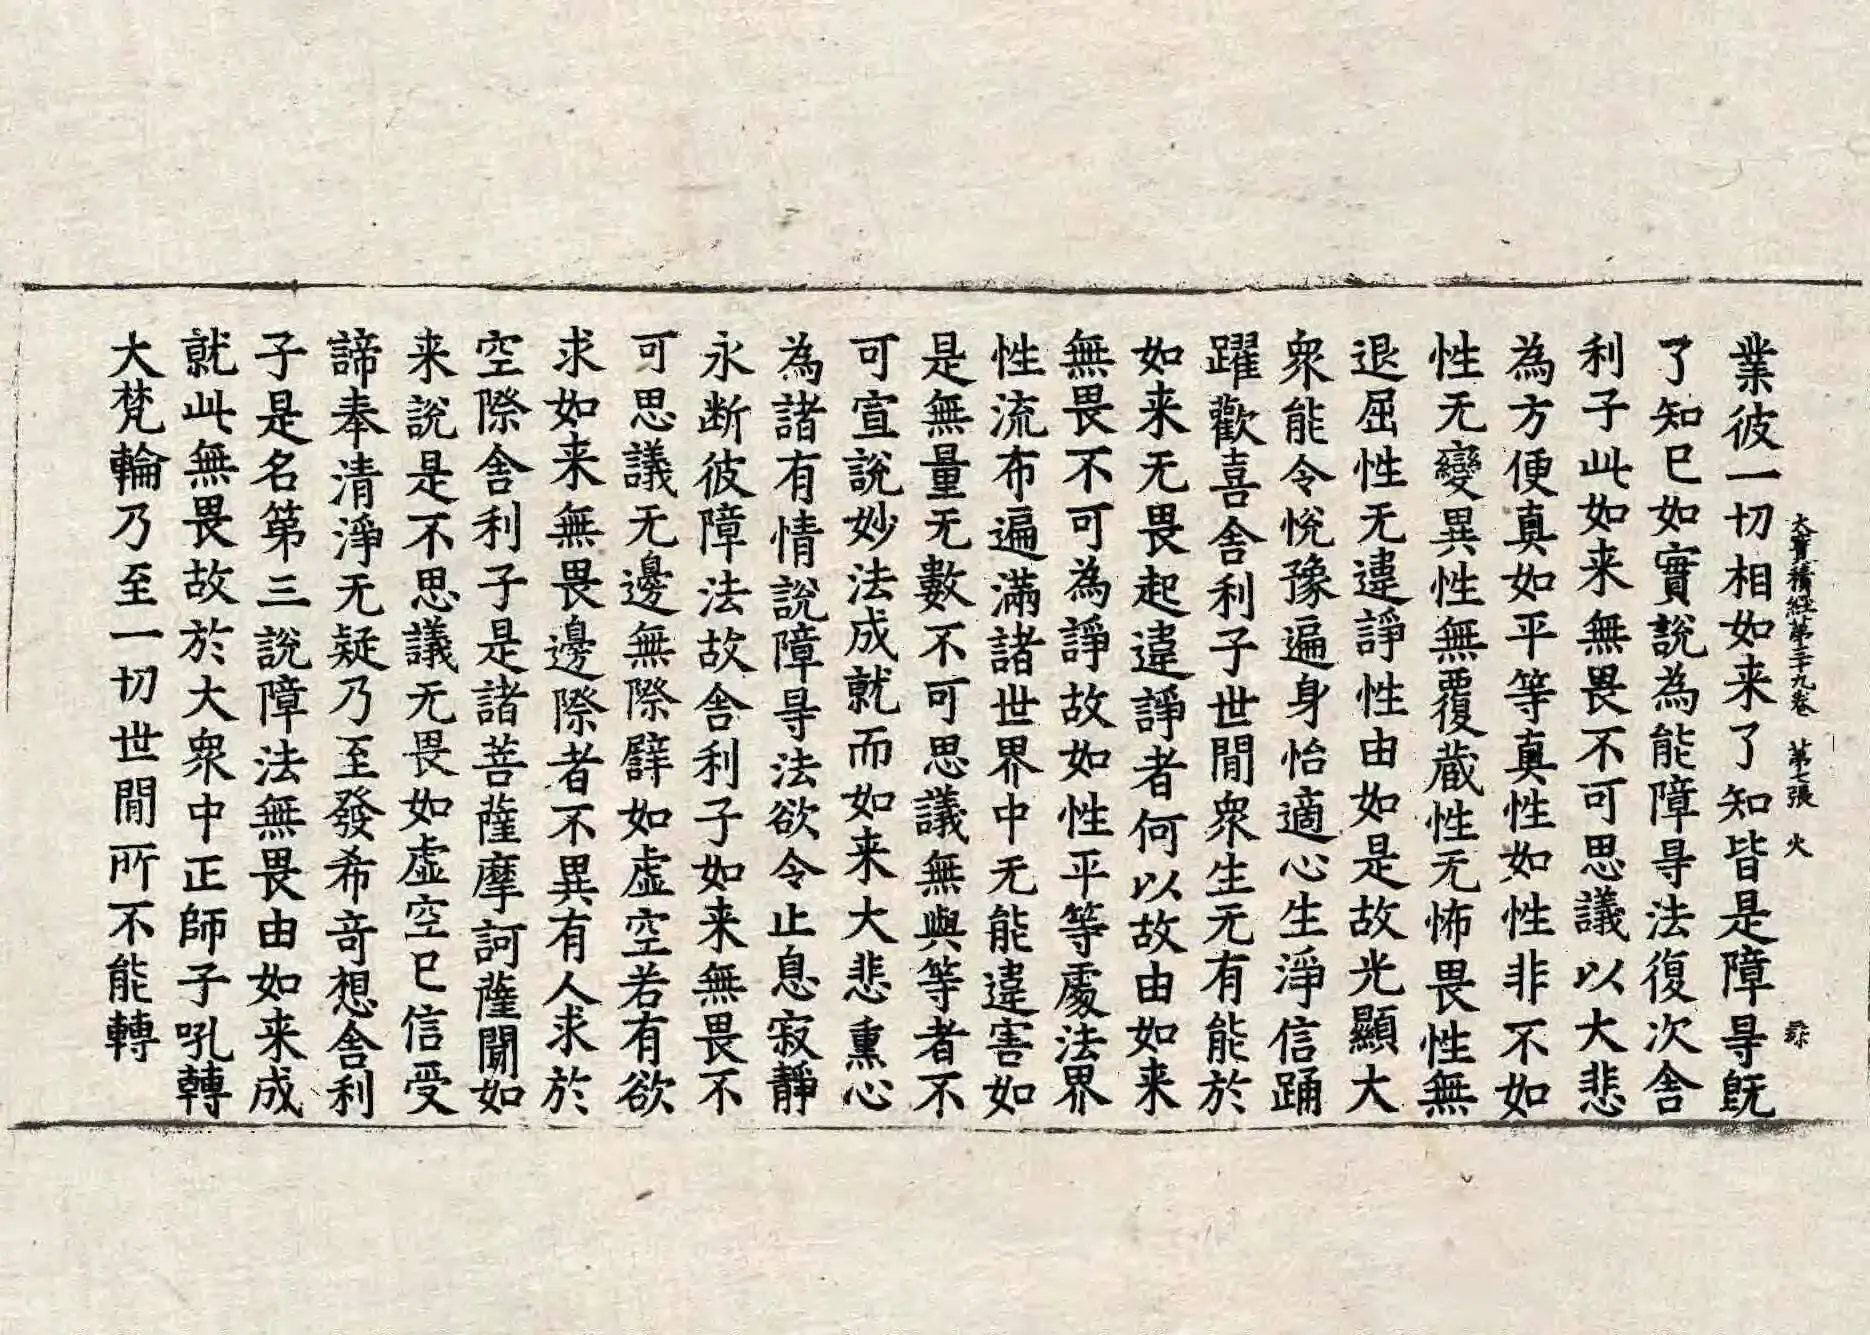 業彼一切相如来了知皆是障㝵既
大寶積經第三十九卷 第七張 火
了知已如實說為能障㝵法復次舍
利子此如来無畏不可思議以大悲
為方便真如平等真性如性非不如
性无變異性無覆蔵性无怖畏性無
退屈性无違諍性由如是故光顯大
衆能令悅豫遍身怡適心生淨信踊
躍歡喜舍利子世間衆生无有能於
如来无畏起違諍者何以故由如来
無畏不可為諍故如性平等處法界
性流布遍滿諸世界中无能違害如
是無量无數不可思議無與等者不
可宣說妙法成就而如来大悲熏心
為諸有情說障㝵法欲令止息寂靜
永断彼障法故舍利子如来無畏不
可思議无邊無際譬如虛空若有欲
求如来無畏邊際者不異有人求於
空際舍利子是諸菩薩摩訶薩聞如
来說是不思議无畏如虛空已信受
諦奉清淨无疑乃至發希竒想舍利
子是名第三說障法無畏由如来成
就此無畏故於大衆中正師子吼轉
大梵輪乃至一切世間所不能轉